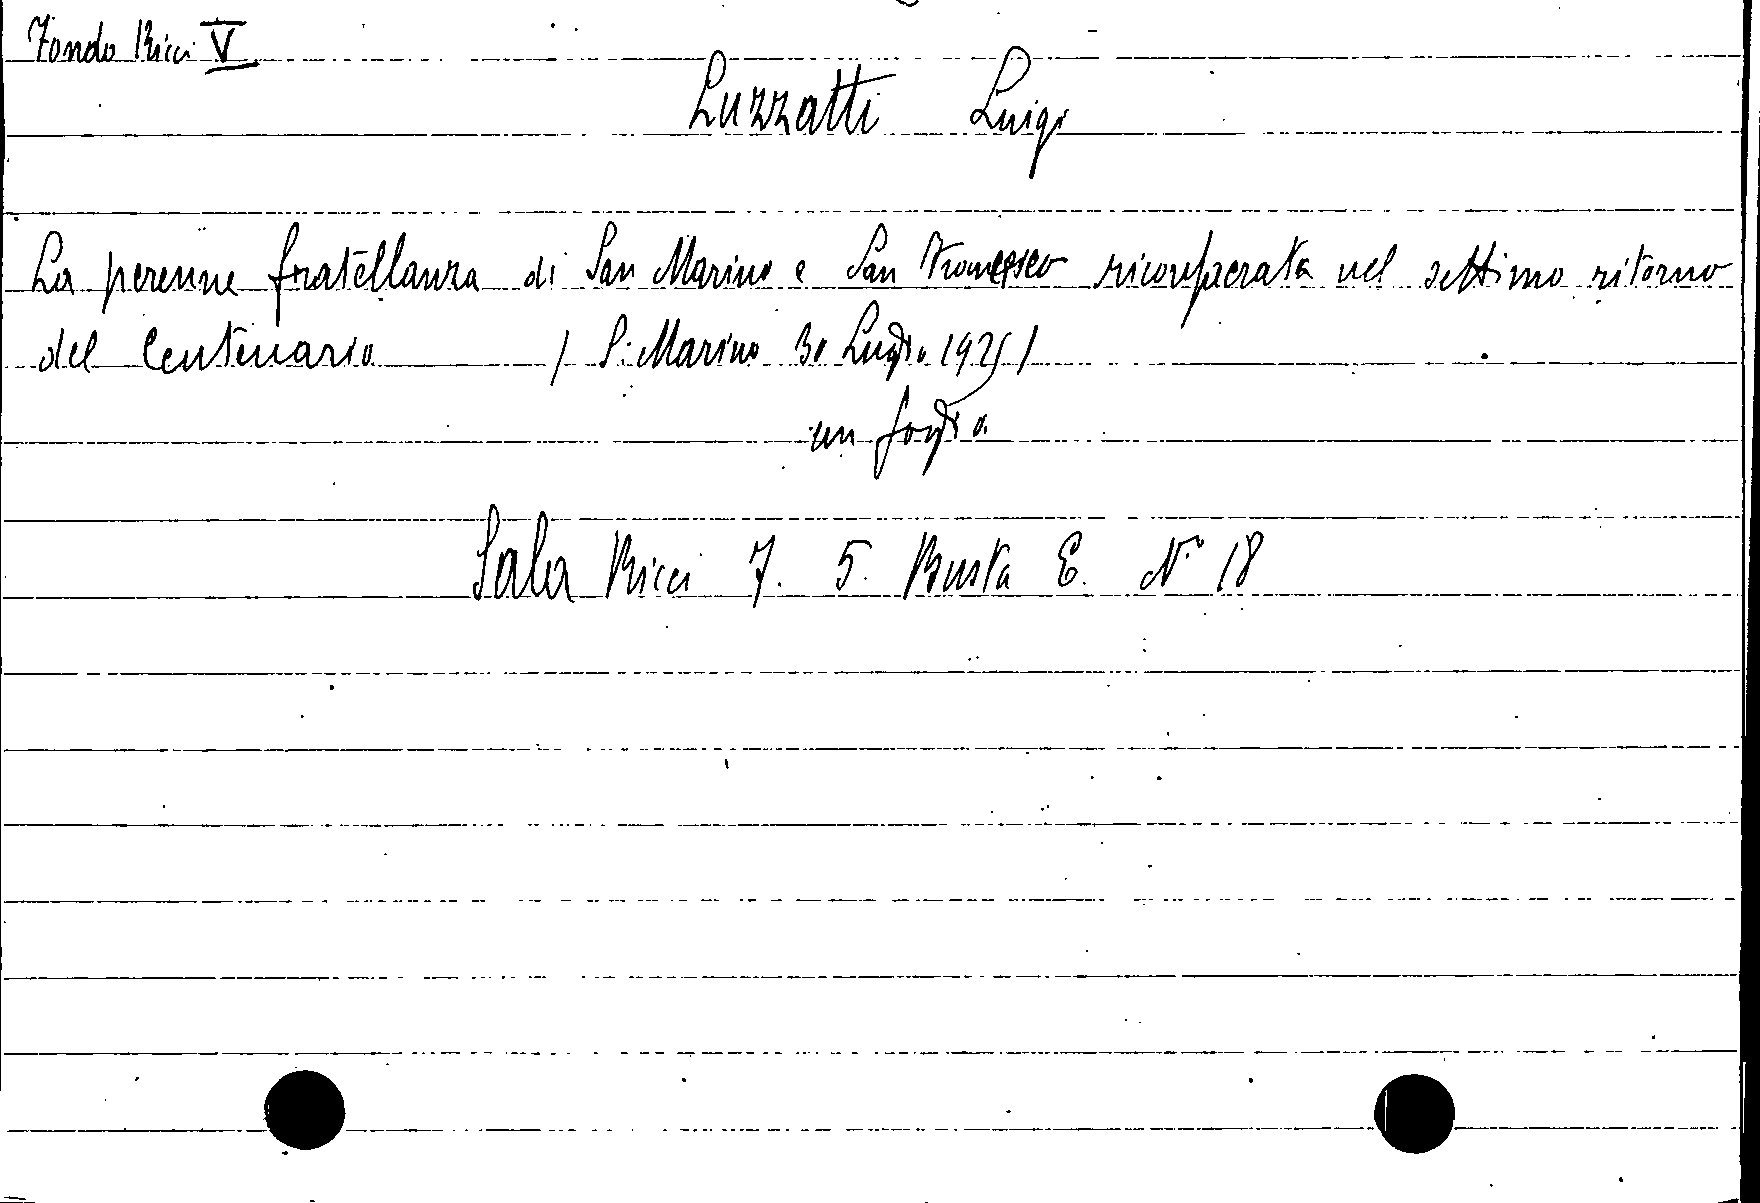 Fondo Ricci V
Luzzatti Luigi
La perenne fratellanza di San Marino e San Francesco riconsacrata nel settimo ritorno
del Centenario / S. Marino 30 Luglio 1925 /
un foglio
Sala Ricci 7. 5. Busta E. N° 18